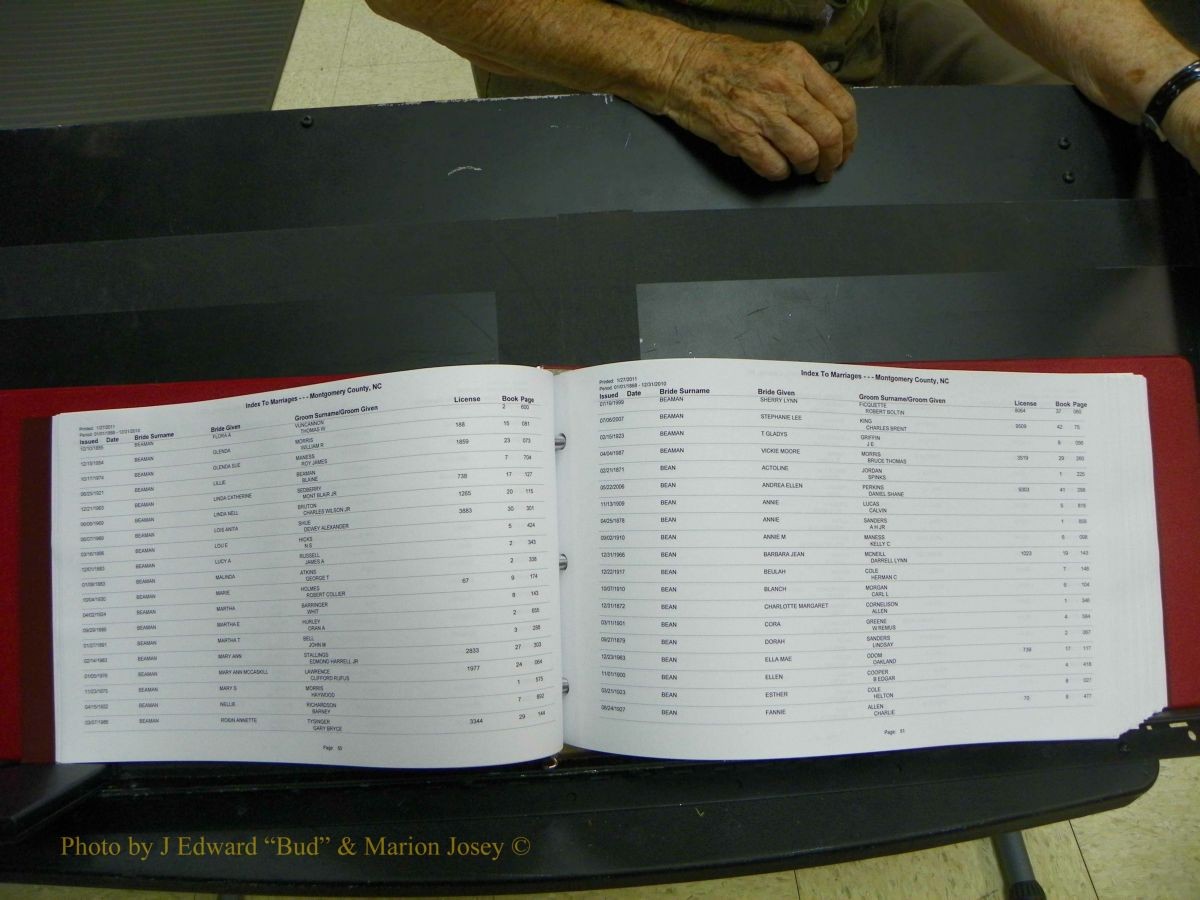 Index To Marriages - - - Montgomery County, NC
Printed: 1/27/2011
Period: 01/01/1868 - 12/31/2010
Issued Date Bride Surname Bride Given Groom Surname/Groom Given License Book Page
BEAMAN FLORA A VUNCANNON 2 600
THOMAS W
12/19/1954 BEAMAN GLENDA MORRIS 188 15 081
WILLIAM R
10/17/1974 BEAMAN GLENDA SUE MANESS 1859 23 073
ROY JAMES
BEAMAN LILLIE BEAMAN 7 704
BLAINE
12/21/1963 BEAMAN LINDA CATHERINE SEDBERRY 738 17 127
MONT BLAIR JR
BEAMAN LINDA NELL BRUTON 1265 20 115
CHARLES WILSON JR
BEAMAN LOIS ANITA SHUE 3883 30 301
DEWEY ALEXANDER
BEAMAN LOU E HICKS 5 424
N S
BEAMAN LUCY A RUSSELL 2 343
JAMES A
BEAMAN MALINDA ATKINS 2 338
GEORGE T
BEAMAN MARIE HOLMES 67 9 174
ROBERT COLLIER
BEAMAN MARTHA BARRINGER 8 143
WHIT
BEAMAN MARTHA E HURLEY 2
ORAN A
01/27/1891 BEAMAN MARTHA T BELL 3
JOHN M
02/14/1983 BEAMAN MARY ANN STALLINGS 2833 27 303
EDMOND HARRELL JR
01/05/1976 BEAMAN MARY ANN MCCASKILL LAWRENCE 1977 24 064
CLIFFORD RUFUS
11/23/1875 BEAMAN MARY S MORRIS 1 575
HAYWOOD
04/15/1922 BEAMAN NELLIE RICHARDSON 7 892
BARNEY
03/07/1986 BEAMAN ROBIN ANNETTE TYSINGER 3344 29 144
GARY BRYCE
Page: 50
Index To Marriages - - - Montgomery County, NC
Printed: 1/27/2011
Period: 01/01/1868 - 12/31/2010
Issued Date Bride Surname Bride Given Groom Surname/Groom Given License Book Page
07/19/1999 BEAMAN SHERRY LYNN FICQUETTE 8064 37 080
ROBERT BOLTIN
07/06/2007 BEAMAN STEPHANIE LEE KING 9509 42 75
CHARLES BRENT
02/15/1923 BEAMAN T GLADYS GRIFFIN 8 056
J E
04/04/1987 BEAMAN VICKIE MOORE MORRIS 3519 29 260
BRUCE THOMAS
02/21/1871 BEAN ACTOLINE JORDAN 1 225
SPINKS
05/22/2006 BEAN ANDREA ELLEN PERKINS 9303 41 288
DANIEL SHANE
11/13/1909 BEAN ANNIE LUCAS 5 816
CALVIN
04/25/1878 BEAN ANNIE SANDERS 1
A H JR
09/02/1910 BEAN ANNIE M MANESS 6 098
KELLY C
12/31/1966 BEAN BARBARA JEAN MCNEILL 1023 19 143
DARRELL LYNN
12/22/1917 BEAN BEULAH COLE 7 148
HERMAN C
10/07/1910 BEAN BLANCH MORGAN 6 104
CARL L
12/31/1872 BEAN CHARLOTTE MARGARET CORNELISON 1 346
ALLEN
03/11/1901 BEAN CORA GREENE 4 584
W REMUS
09/27/1879 BEAN DORAH SANDERS 2 067
LINDSAY
12/23/1963 BEAN ELLA MAE ODOM 739 17 117
OAKLAND
11/01/1900 BEAN ELLEN COOPER 4 418
B EDGAR
03/21/1923 BEAN ESTHER COLE 70 8 027
HELTON
08/24/1907 BEAN FANNIE ALLEN 5 477
CHARLIE
Page: 51
Photo by J Edward “Bud” & Marion Josey ©